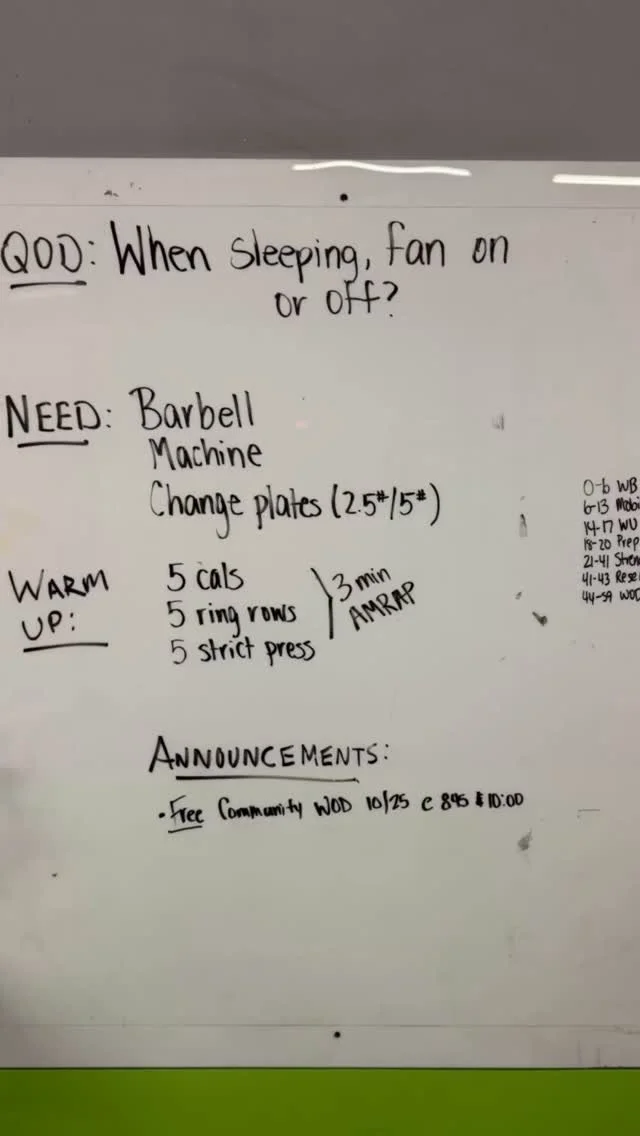 QOD: When sleeping, fan on
or off?
NEED: Barbell
Machine
Change plates (2.5#/5#)
WARM UP:
5 cals
5 ring rows
5 strict press
3 min
AMRAP
ANNOUNCEMENTS:
• Free Community WOD 10/25 @ 845 & 10:00
0-6 WB
6-13 Mobi
14-17 WU
18-20 Prep
21-41 Stren
41-43 Rese
44-59 WOD